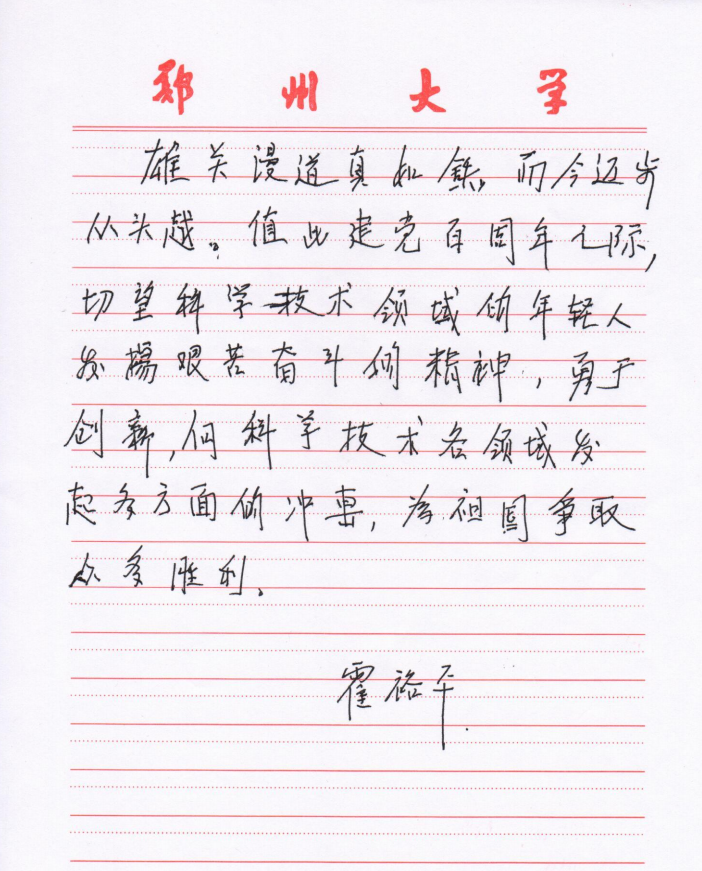 郑州大学
雄关漫道真如铁，而今迈步
从头越。值此建党百周年之际，
切望科学技术领域的年轻人
发揚艰苦奋斗的精神，勇于
创新，向科学技术各领域发
起多方面的冲击，为祖国争取
众多胜利。
霍裕平